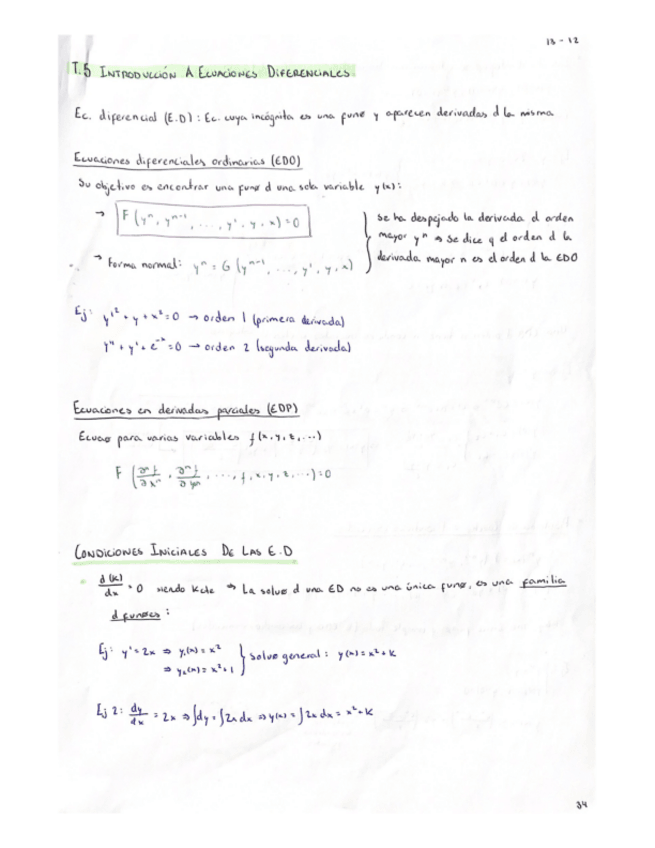 13-12
T.5 INTRODUCCIÓN A ECUACIONES DIFERENCIALES.
Ec. diferencial (E.D) : Ec. cuya incógnita es una func y aparecen derivadas d la misma
Ecuaciones diferenciales ordinarias (EDO)
Su objetivo es encontrar una func d una sola variable y(x):
→ F (yⁿ, yⁿ⁻¹, ..., y', y, x) = 0
se ha despejado la derivada d orden
mayor yⁿ ⇒ Se dice q el orden d la
derivada mayor n es el orden d la EDO
→ Forma normal: yⁿ = G (yⁿ⁻¹, ..., y', y, x)
Ej: y'² + y + x² = 0 → orden 1 (primera derivada)
y'' + y' + e⁻ˣ = 0 → orden 2 (segunda derivada)
Ecuaciones en derivadas parciales (EDP)
Ecuac para varias variables f(x, y, z, ...)
F (∂ⁿf/∂xⁿ, ∂ⁿf/∂yⁿ, ..., f, x, y, z, ...) = 0
CONDICIONES INICIALES DE LAS E.D
d(K)/dx = 0 siendo K cte ⇒ La soluc d una ED no es una única func, es una familia
d funcs :
Ej: y' = 2x ⇒ y₁(x) = x²
⇒ y₂(x) = x² + 1 } soluc general: y(x) = x² + K
Ej 2: dy/dx = 2x ⇒ ∫dy = ∫2x dx ⇒ y(x) = ∫2x dx = x² + K
34